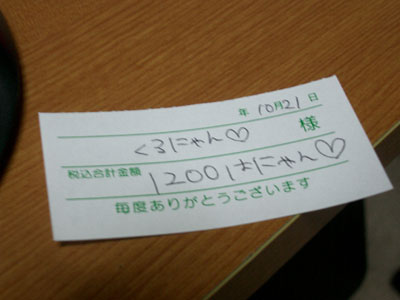 年 10月21日
くろにゃん♡ 様
税込合計金額 1200はにゃん♡
毎度ありがとうございます